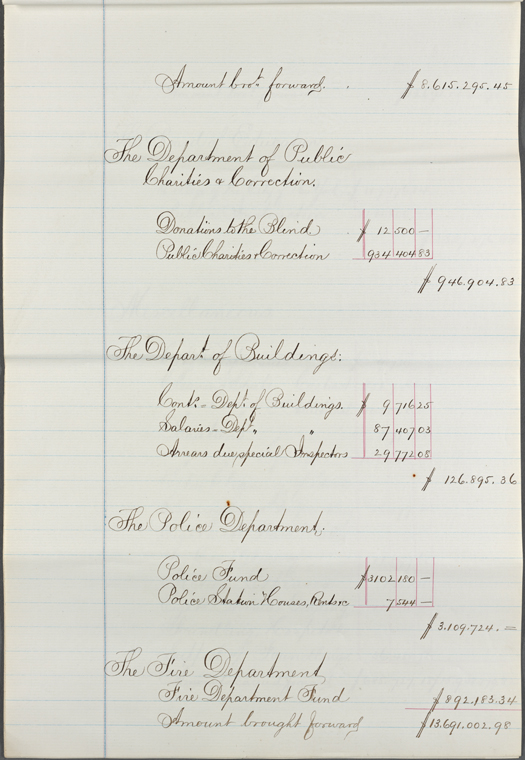 Amount bro.t forward. $8.615.295.45
The Department of Public
Charities & Correction.
Donations to the Blind $ 12 500 —
Public Charities & Correction 934 404 83
$946.904.83
The Depart.t of Buildings:
Cont.s = Dep.t of Buildings. $ 9 716 25
Salaries = Dep.t " " 87 407 03
Arrears due special Inspectors 29 772 08
$126.895.36
The Police Department:
Police Fund $3102 180 —
Police Station Houses, Rents &c 7 544 —
$3.109.724.=
The Fire Department
Fire Department Fund $892.183.34
Amount brought forward $13.691.002.98